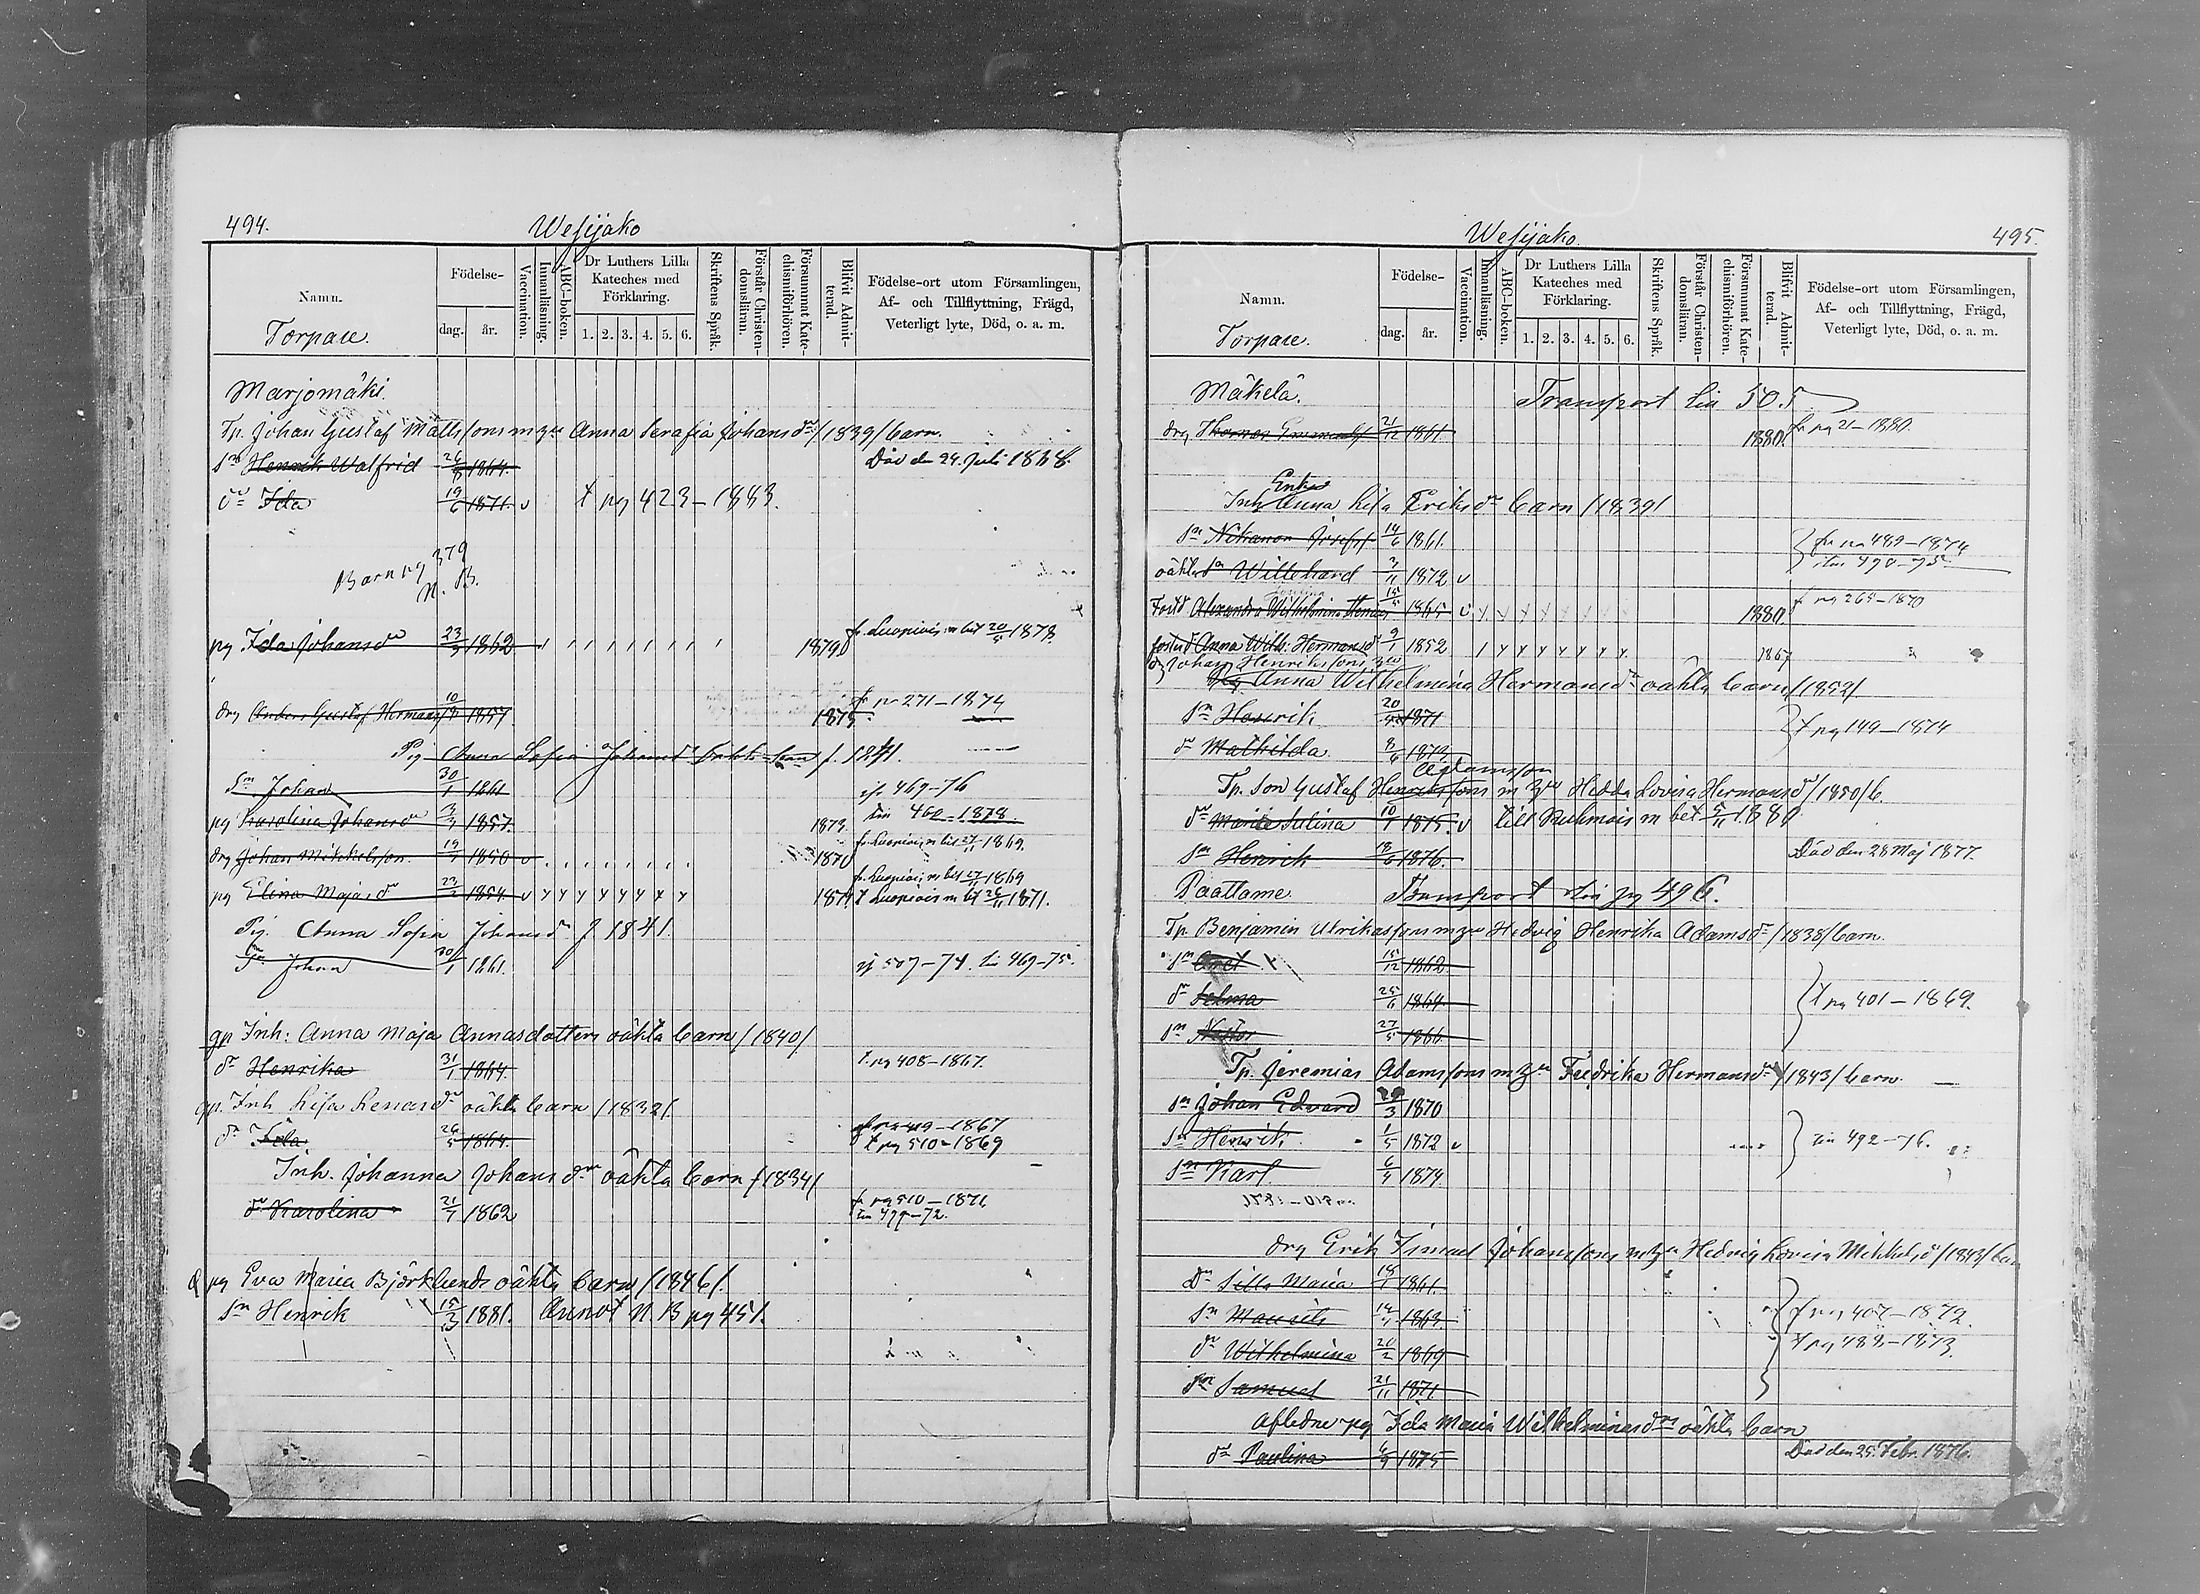 494.
Wesijako
Namn.
Torpare.
Födelse-
dag. år.
Vaccination.
Innanläsning.
ABC-boken.
Dr Luthers Lilla Kateches med Förklaring.
1. 2. 3. 4. 5. 6.
Skriftens Språk.
Förstår Christen-domsläran.
Försummat Kate-chismiförhören.
Blifvit Admit-terad.
Födelse-ort utom Församlingen, Af- och Tillflyttning, Frägd, Veterligt lyte, Död, o. a. m.
Marjomäki.
Tp. Johan Gustaf Mattssons m hu Anna Serafia Johansdr /1839/ barn.
sn Henrik Walfrid 26/8 1864. Död den 24. Juli 1868.
dr Ida 19/6 1871. v t pg 423–1883.
Barn pg 379
N. B.
pg Ida Johansdr 23/3 1862 1879 fr. Luopiois m bet 20/5 1878.
drg Anders Gustaf Hermans 10/8 1857 1875 fr pg 271–1874
Pig Anna Sofia Johansdr oäkta barn f. 1841.
Sn Johan 30/1 1861 469–76
pg Karolina Johansdr 3/3 1857. 1873 till 460–1878.
drg Johan Mikkelsson 19/7 1850 v 1870 fr. Luopiois m bet 27/11 1869.
pg Elina Majasdr 23/2 1854 v y y y y y y y y 1871 fr. Luopiois m bet 27/11 1869
t Luopiois m bet 26/11 1871.
Pig. Anna Sofia Johansdr f 1841.
Sn Johan 30/1 1861. 507–74. till 469–75.
gp Inh: Anna Maja Annasdotters oäkta barn /1840/
dr Henrika 31/1 1864. t. pg 408–1867.
gp. Inh Lisa Lenasdr oäkta barn /1832/.
dr Ida 26/5 1864. fr pg 419–1867
t pg 510–1869
Inh. Johanna Johansdrs oäkta barn /1834/
dr Karolina 21/1 1862 fr pg 510–1871
till 499–72.
pg Eva Maria Björklunds oäkta barn /1846/.
sn Henrik 15/3 1881. Annot N. B pg 451.
Wesijako.
495.
Namn.
Torpare.
Födelse-
dag. år.
Vaccination.
Innanläsning.
ABC-boken.
Dr Luthers Lilla Kateches med Förklaring.
1. 2. 3. 4. 5. 6.
Skriftens Språk.
Förstår Christen-domsläran.
Försummat Kate-chismiförhören.
Blifvit Admit-terad.
Födelse-ort utom Församlingen, Af- och Tillflyttning, Frägd, Veterligt lyte, Död, o. a. m.
Mäkelä. Transport till 505
drg 21/12 1861. 1880. fr pg 21–1880.
Enka
Inh Anna Lisa Eriksdr barn /1839/
sn Nikanor Josefs 14/6 1861. fr pg 489–1874
till 490–75.
oäkta sn Willehard 3/11 1872 v
Fostd Alexandra Wilhelmina Hermans 15/5 1865 v 1880 f pg 264–1870
fosterd Anna Wilh: Hermansdr 9/1 1852 1867
drg Johan Henrikssons hu
Anna Wilhelmina Hermansdr oäkta barn /1852/
sn Henrik 20/4 1871 t pg 149–1874
dr Mathilda 8/6 1873
Adamsson
Tp. son Gustaf Henrikssons m hu Hedda Lovisa Hermansdr /1850/ b.
dr Maria Selina 10/1 1875. v till Kuhmois m bet 5/11 1880
sn Henrik 18/6 1876. Död den 28 Maj 1877.
Paattame Transport till pg 496.
Tp Benjamin Ulrikassons m hu Hedvig Henrika Adamsdr /1838/ barn.
sn Axel 15/12 1862.
dr Selma 25/6 1864. t pg 401–1869.
sn Nestor 27/5 1866.
Tp. Jeremias Adamssons m hu Fredrika Hermansdr /1843/ barn.
sn Johan Edvard 29/3 1870
sn Henrik 1/5 1872 v till 492–76.
sn Karl 6/4 1874
drg Erik Ismael Johanssons m hu Hedvig Lovisa Mikkelsdr /1843/ ba
dr Silla Maria 18/1 1861.
sn Maurits 14/4 1863. fr pg 407–1872.
dr Wilhelmina 20/2 1869 t pg 488–1873.
sn Samuel 21/11 1871
Aflidne pg Ida Maria Wilhelminasdrs oäkta barn
dr Paulina 6/9 1875 Död den 25. Febr. 1876.